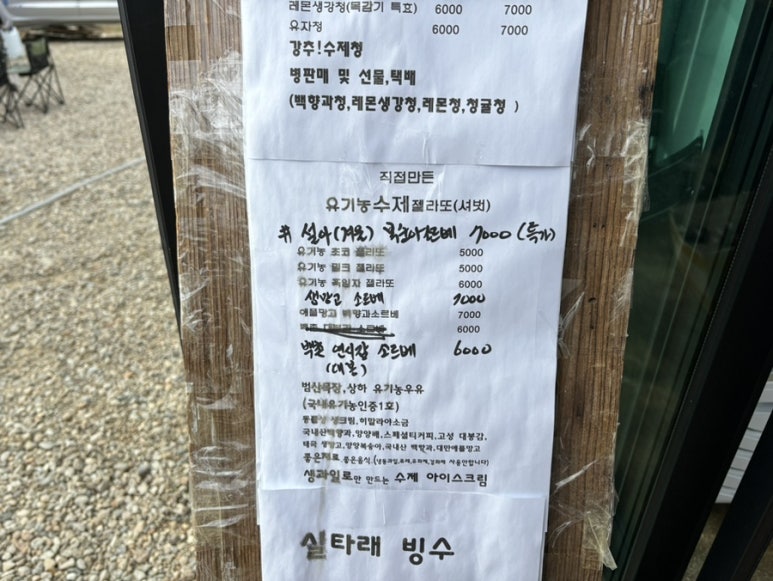 레몬생강청(목감기 특효) 6000 7000
유자청 6000 7000
강추!수제청
병판매 및 선물,택배
(백향과청,레몬생강청,레몬청,청귤청 )
직접만든
유기농수제젤라또(셔벗)
설아(겨울) 복숭아소르베 7000 (특가)
유기농 초코 젤라또 5000
유기농 밀크 젤라또 5000
유기농 흑임자 젤라또 6000
생망고 소르베 7000
애플망고 백향과소르베 7000
6000
백촌 연시감 소르베 6000
(대봉)
범산목장,상하 유기농우유
(국내유기농인증1호)
동물성 생크림,히말라야소금
국내산백향과,양양배,스페셜티커피,고성 대봉감,
태국 생망고,양양복숭아,국내산 백향과,대만애플망고
좋은재료 좋은음식.
생과일로만 만드는 수제 아이스크림
실타래 빙수